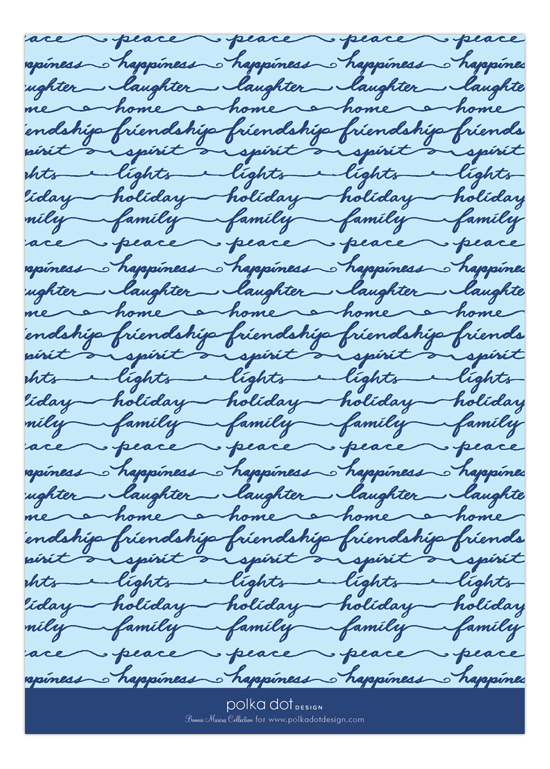 ace peace peace peace peace
ppiness happiness happiness happiness happines
ughter laughter laughter laughter laughte
me home home home home
endship friendship friendship friendship friends
pirit spirit spirit spirit spirit
hts lights lights lights lights
iday holiday holiday holiday holiday
mily family family family family
ace peace peace peace peace
ppiness happiness happiness happiness happines
ughter laughter laughter laughter laughte
me home home home home
endship friendship friendship friendship friends
pirit spirit spirit spirit spirit
hts lights lights lights lights
iday holiday holiday holiday holiday
mily family family family family
ace peace peace peace peace
ppiness happiness happiness happiness happines
ughter laughter laughter laughter laughte
me home home home home
endship friendship friendship friendship friends
pirit spirit spirit spirit spirit
hts lights lights lights lights
iday holiday holiday holiday holiday
mily family family family family
ace peace peace peace peace
ppiness happiness happiness happiness happines
polka dot DESIGN
Bonnie Marcus Collection for www.polkadotdesign.com